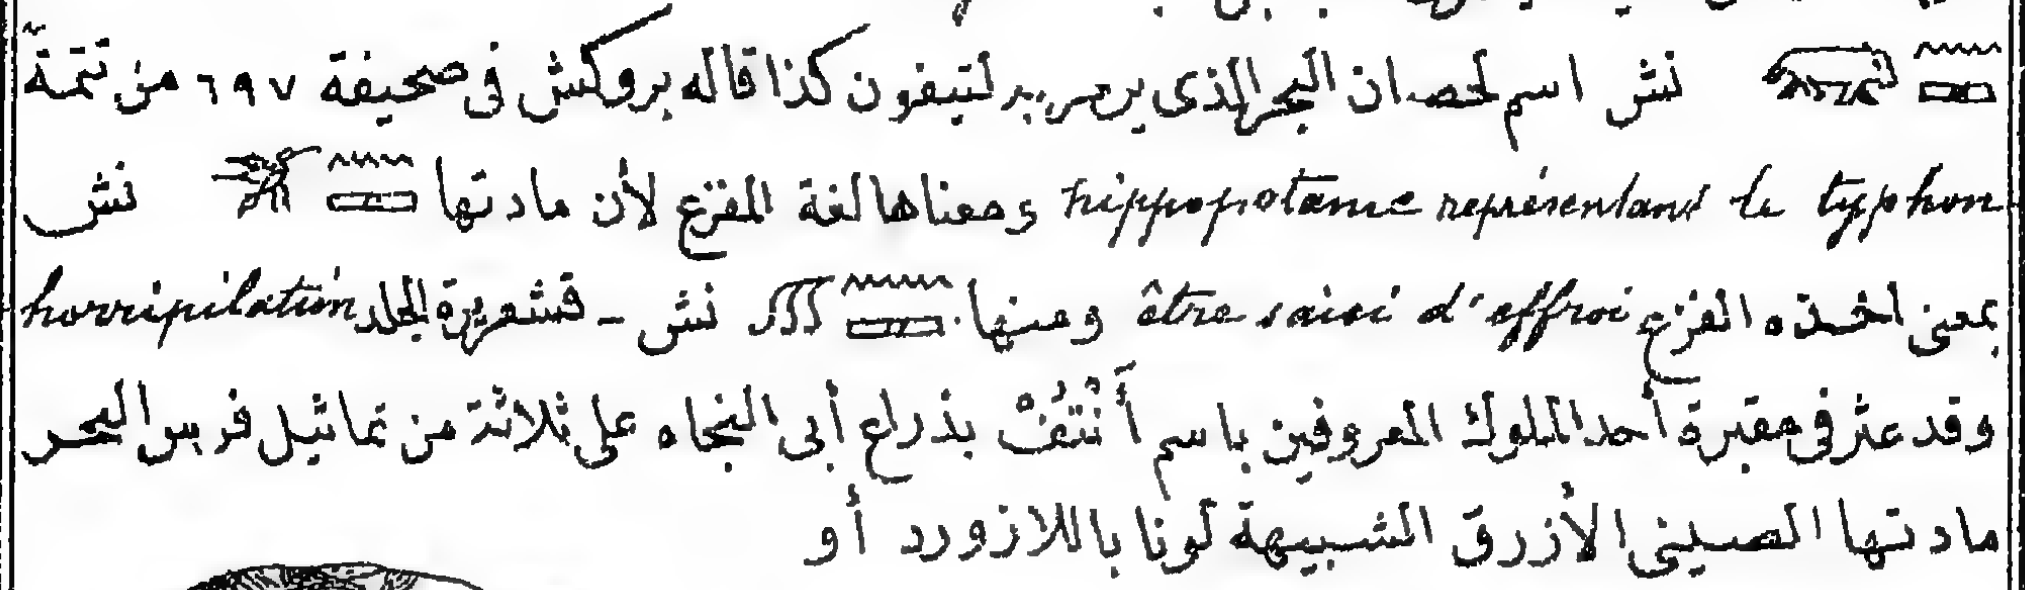 نش اسم لحصان البحر الذى يرمزبه لتيفون كذا قاله بروكش فى صحيفة ٦٩٧ من تتمة
hippopotame représentant le typhon ومعناها لغة المفزع لأن مادتها نش
بمعنى أخذه الفزع être saisi d'effroi ومنها نش ـ قشعريرة الجلد horripilation
وقد عثر فى مقبرة أحد الملوك المعروفين باسم أَنْتُفْ بذراع أبى النجاه على ثلاثة من تماثيل فرس البحر
مادتها الصينى الأزرق الشبيهة لونا باللازورد أو